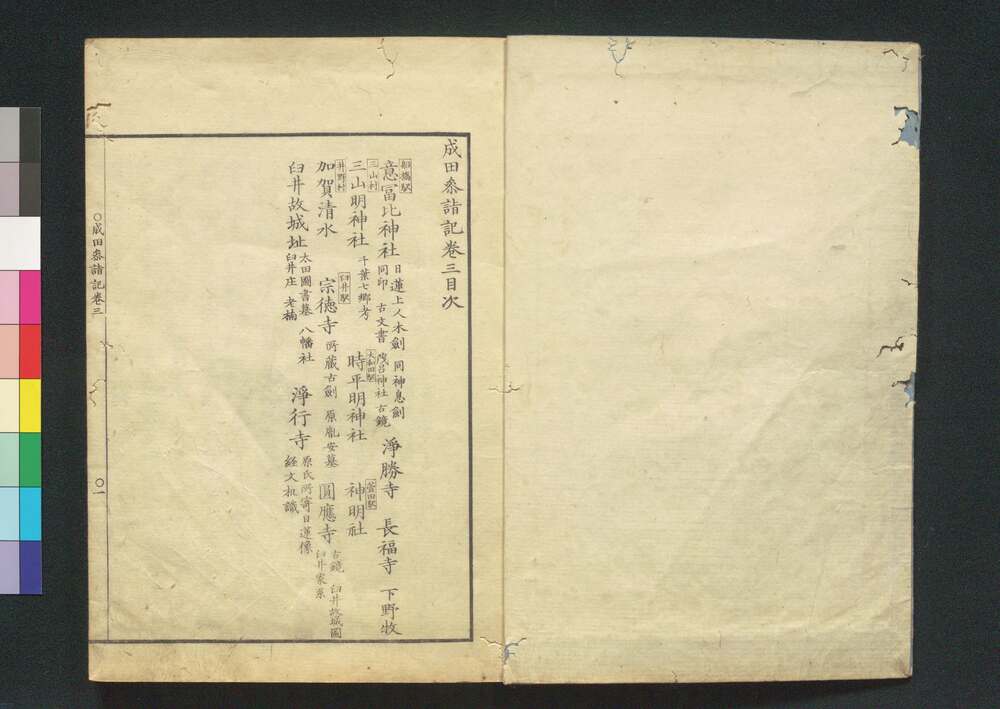 成田叅詣記巻三目次
舩橋駅
意冨比神社 日蓮上人木劍 同神息劍 同印 古文書 茂呂神社 古鏡 淨勝寺 長福寺 下野牧
三山村
三山明神社 千葉七郷考 大和田駅 時平明神社 萱田駅 神明社
井野村
加賀清水 臼井駅 宗德寺 所藏古劍 原胤安墓 圓應寺 古鏡 臼井故城圖 臼井家系
臼井故城址 太田圖書墓 八幡社 臼井庄 老楠 淨行寺 原氏所寄日蓮像 経文机識
○成田叅詣記巻三
○一